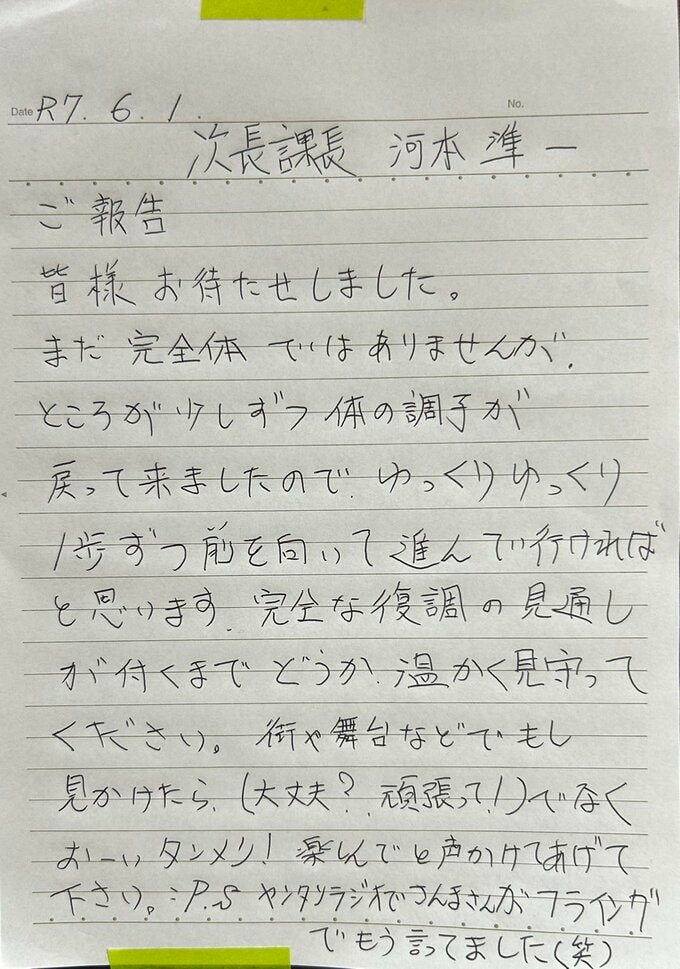 Date R7. 6. 1. No.
次長課長 河本 準一
ご報告
皆様 お待たせしました。
まだ 完全体 ではありませんが、
ところが 少しずつ 体の調子が
戻って来ましたので、ゆっくりゆっくり
1歩ずつ前を向いて進んで行ければ
と思います、完全な復調の見通し
が付くまで どうか、温かく見守って
ください。 街や舞台などでもし
見かけたら、(大丈夫?、頑張って!)でなく
おーいタンメン! 楽しんでと声かけてあげて
下さい。:P.S ヤンタンラジオでさんまさんがフライング
でもう言ってました(笑)